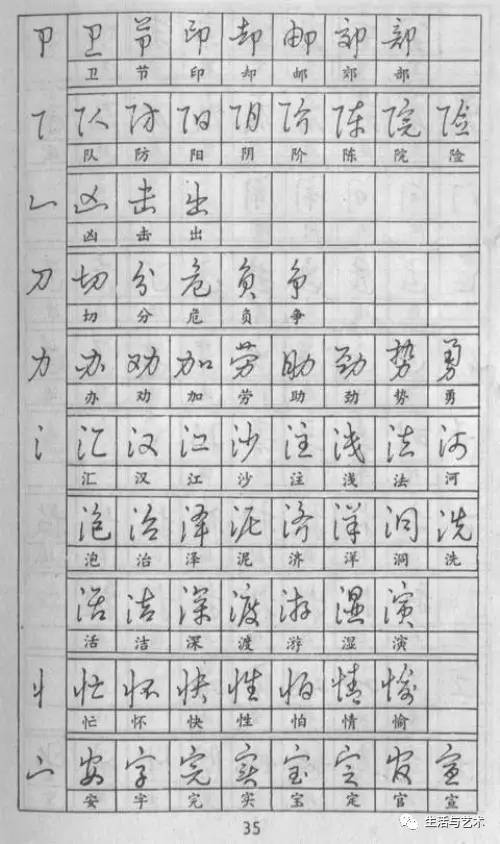 卩 卫 节 印 却 邮 郊 部
卫 节 印 却 邮 郊 部
阝 队 防 阳 阴 阶 陈 院 险
队 防 阳 阴 阶 陈 院 险
凵 凶 击 出
凶 击 出
刀 切 分 危 负 争
切 分 危 负 争
力 办 劝 加 劳 助 劲 势 勇
办 劝 加 劳 助 劲 势 勇
氵 汇 汉 江 沙 注 浅 法 河
汇 汉 江 沙 注 浅 法 河
泡 治 泽 泥 济 洋 洞 洗
泡 治 泽 泥 济 洋 洞 洗
活 洁 深 渡 游 湿 演
活 洁 深 渡 游 湿 演
忄 忙 怀 快 性 怕 情 愉
忙 怀 快 性 怕 情 愉
宀 安 字 完 实 宝 定 官 宣
安 字 完 实 宝 定 官 宣
35
生活与艺术